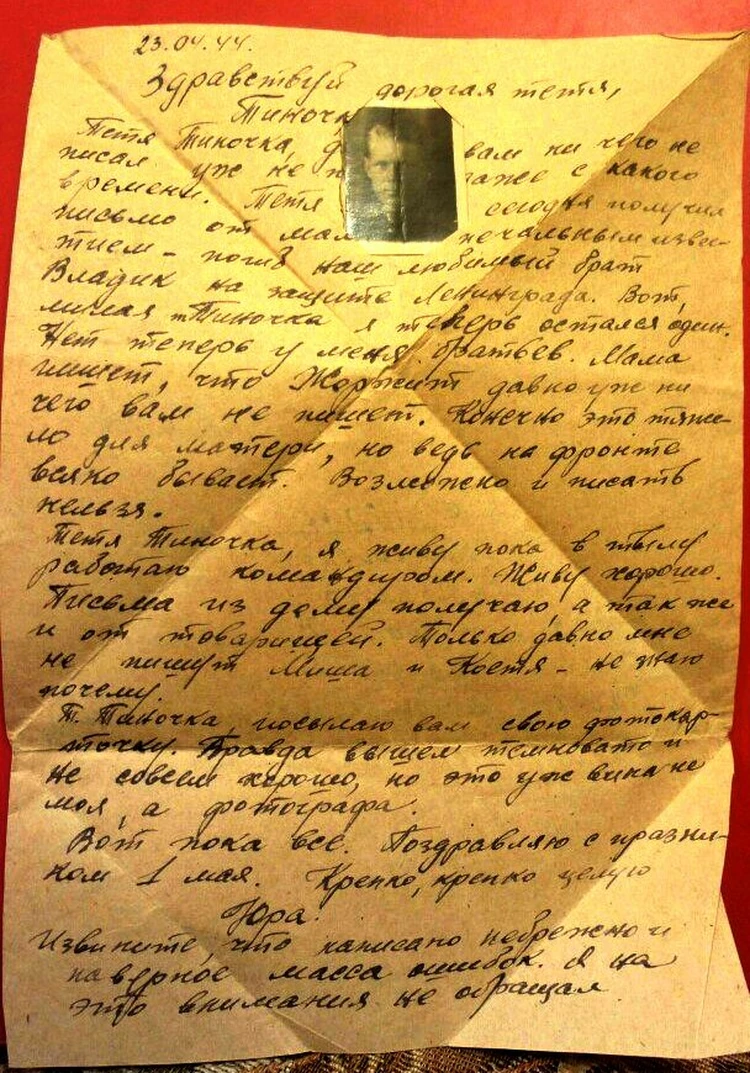 23.04.44.
Здравствуй дорогая тетя,
Тиночк
Тетя Тиночка, вам ни чего не
писал уж не даже с какого
времени. Тетя сегодня получил
письмо от мам печальным изве-
тием - погиб наш любимый брат
Владик на защите Ленинграда. Вот,
милая тТиночка я теперь остался один.
Нет теперь у меня братьев. Мама
пишет, что Жоржит давно уж ни
чего вам не пишет. Конечно это тяже-
ло для матери, но ведь на фронте
всяко бывает. Возможно и писать
нельзя.
Тетя Тиночка, я живу пока в тылу
работаю командиром. Живу хорошо.
Письма из дому получаю, а так же
и от товарищей. Только давно мне
не пишут Миша и Костя - не знаю
почему.
Т. Тиночка, посылаю вам свою фотокар-
точку. Правда вышел темновато и
не совсем хорошо, но это уж вина не
моя, а фотографа.
Вот пока все. Поздравляю с празни-
ком 1 мая. Крепко, крепко целую
Юра.
Извините, что написано небрежно и
наверное масса ошибок. Я на
это внимания не обращал